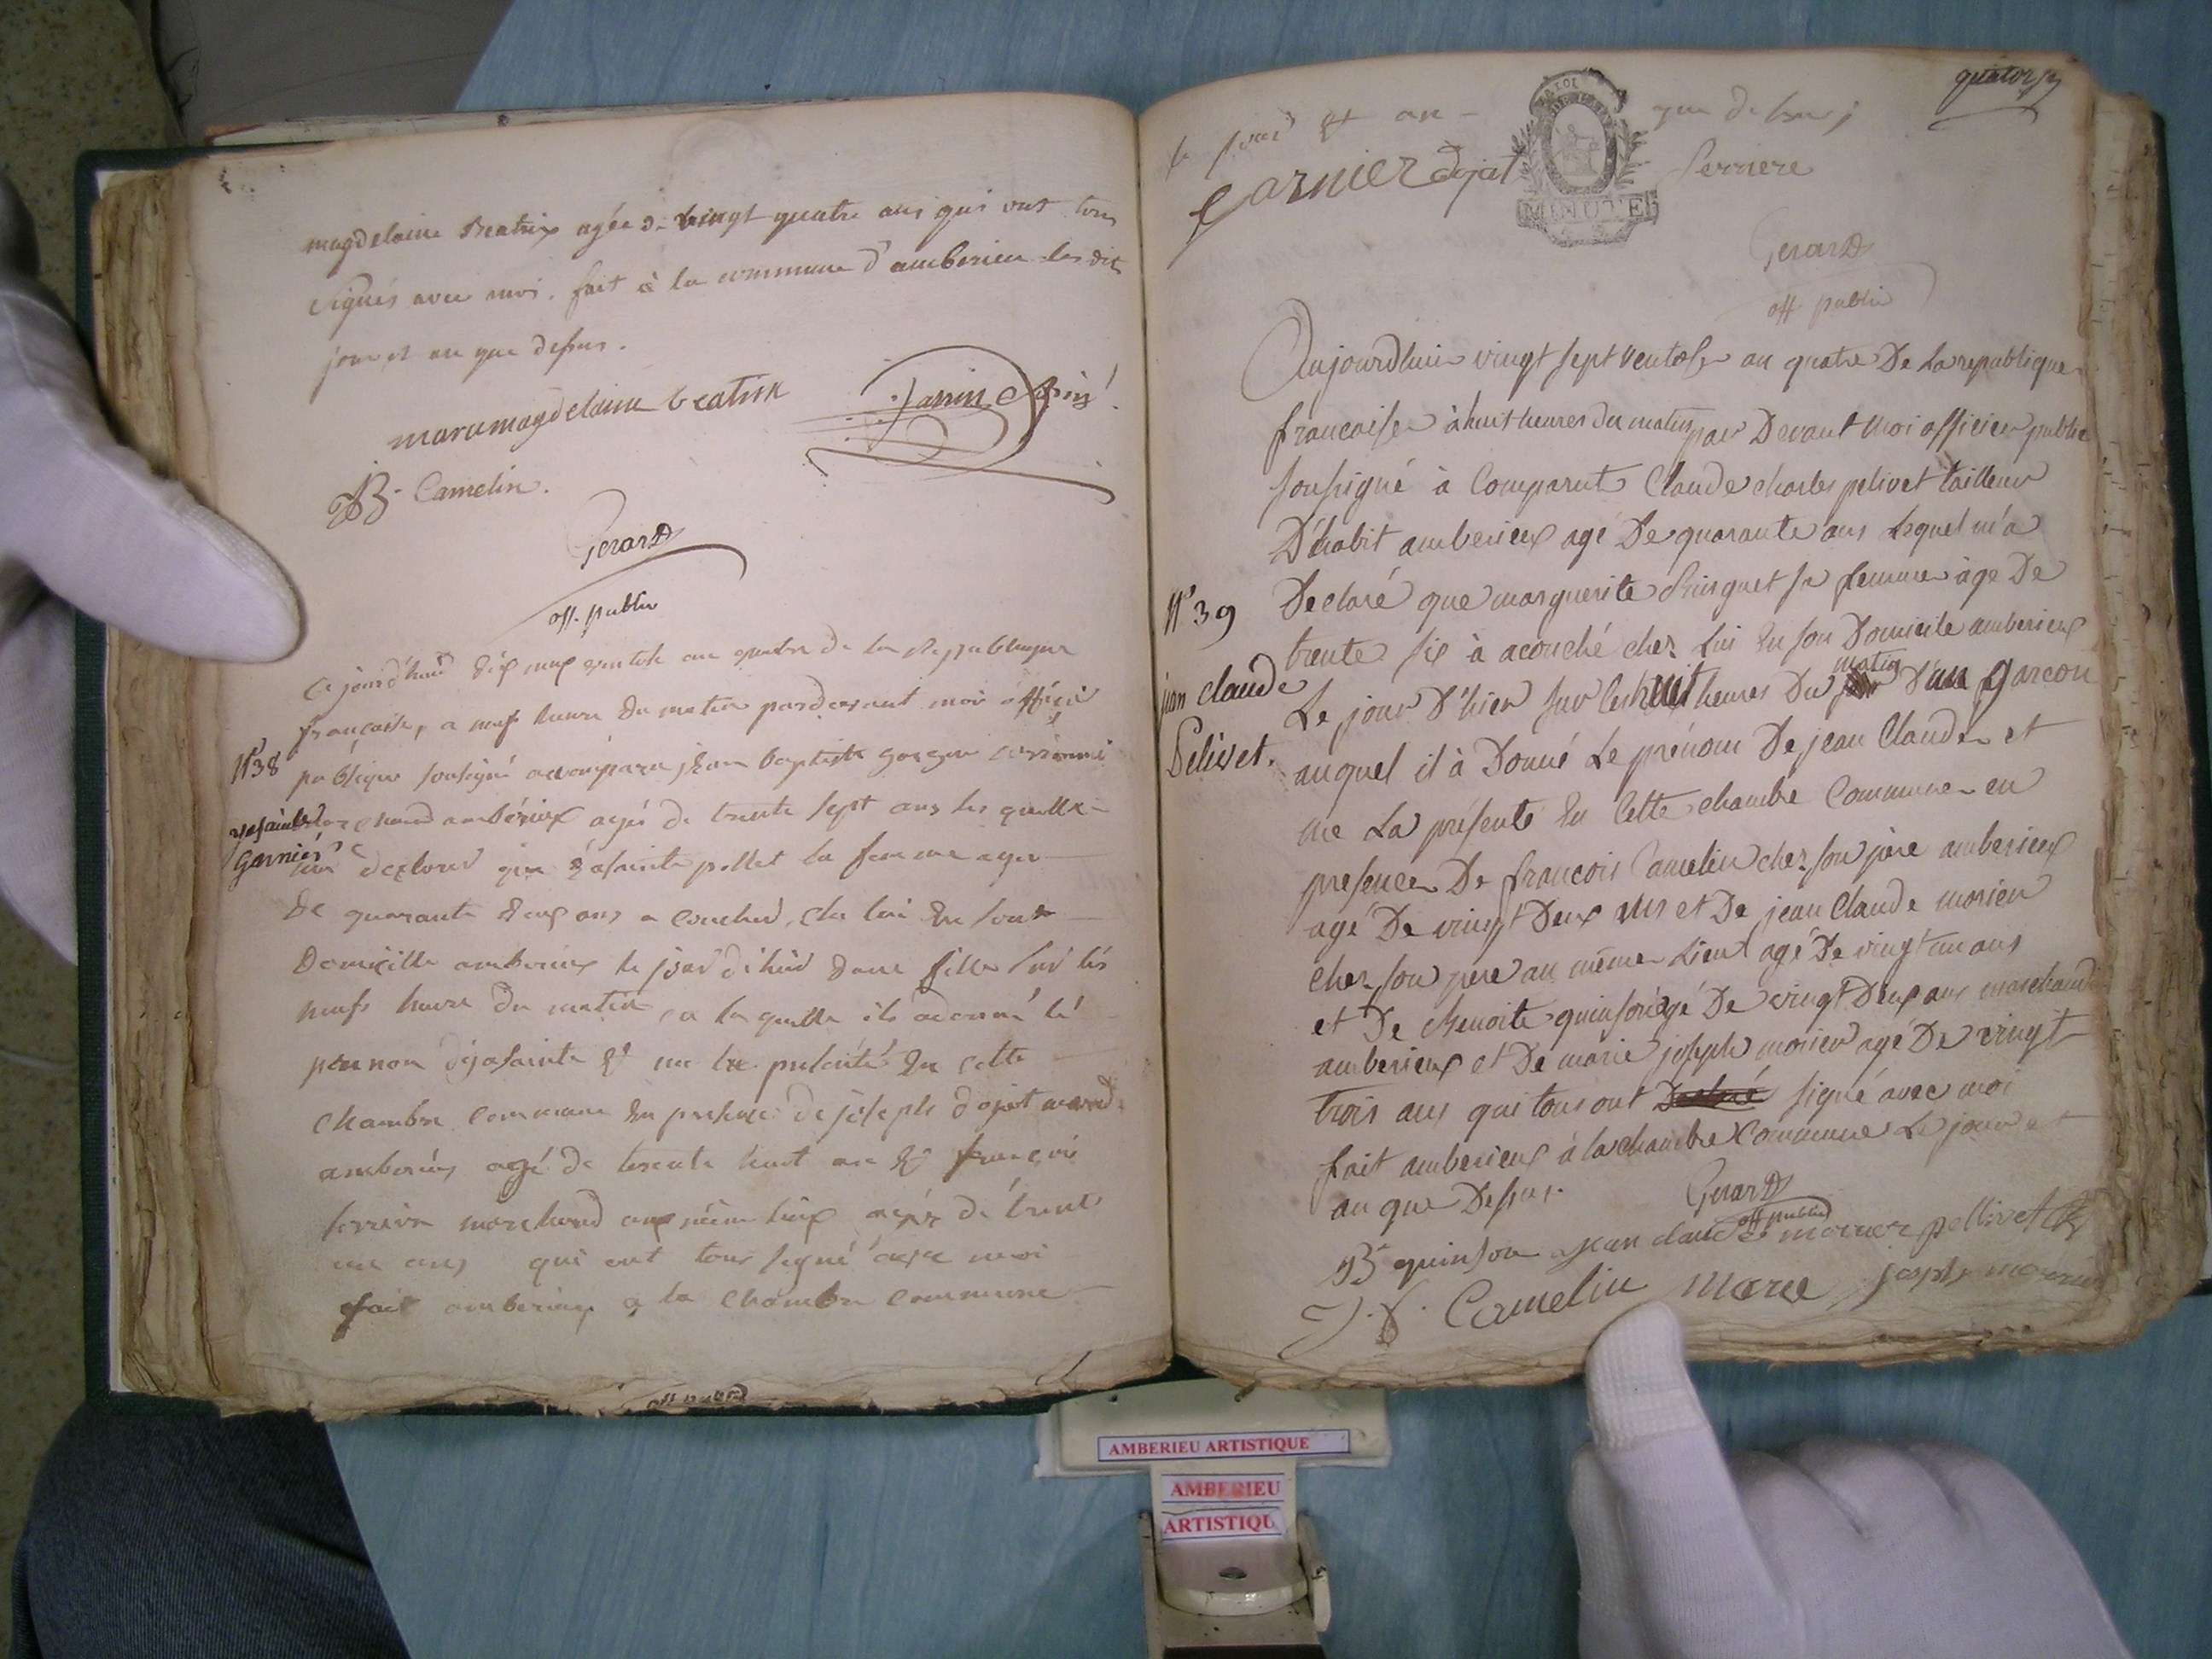 magdelaine Beatrix agée de vingt quatre ans qui ont tous
signés avec moi. fait à la commune d'amberieu les dits
jour et an que dessus.
marie magdelaine beatrix
Janin
JB. Camelin.
Gerard
off. public
Ce jourd'hui dix neuf ventose an quatre de la Republique
française, a neuf heure du matin pardevant moi officié
N° 38
publique soussigné a comparu jean baptiste
marchand ambérieux agés de trente sept ans les quelle
Garnier
declaré que pollet sa femme agée
de quarante deux ans a couched ches lui en son
Domicille amberieux le jour d'hier dune fille sur les
neufs heure du matin a la quelle ils a donné le
penon et me la presenté en cette
chambre commune en presence de joseph dojat
amberieux agé de trente huit an et françois
ferriere marchand aux même lieux agés de trente
un ans qui ont tous signé avec moi
fait amberieux a la chambre commune
off. public
quatorze
le jour et an que dessus
Garnier dojat ferriere
MINUTE
Gerard
off public
Aujourdhuir vingt sept ventose an quatre De La republique
francaise à huit heures du matin par Devant Moi officier public
soussigné à Comparut Claude charles pelivet tailleur
D'habit amberieux agé De quarante ans Lequel m'a
N° 39
Declaré que marguerite sa femme àge De
trente six à acouché chez Lui En son Domicile amberieux
jean claude
Pelivet.
matin
Le jour D'hier sur les huit heures Du D'un garcon
auquel il à Donné Le prénom De jean Claude et
me La présenté En Cette chambre Commune en
presence De francois Camelin chez son père amberieux
agé De vingt Deux ans et De jean Claude morier
chez son pere au même Lieu agé De vingt un ans
et De Benoite quinson àgé De vingt Deux ans marchande
amberieux et De marie joseph morier agé De vingt
trois ans qui tous ont signé avec moi
fait amberieux à la chambre Commune Le jour et
an que Dessus.
Gerard
off public
Bte quinson jean claude morier pellivet
J. f. Camelin marie joseph morier
AMBERIEU ARTISTIQUE
AMBERIEU
ARTISTIQU